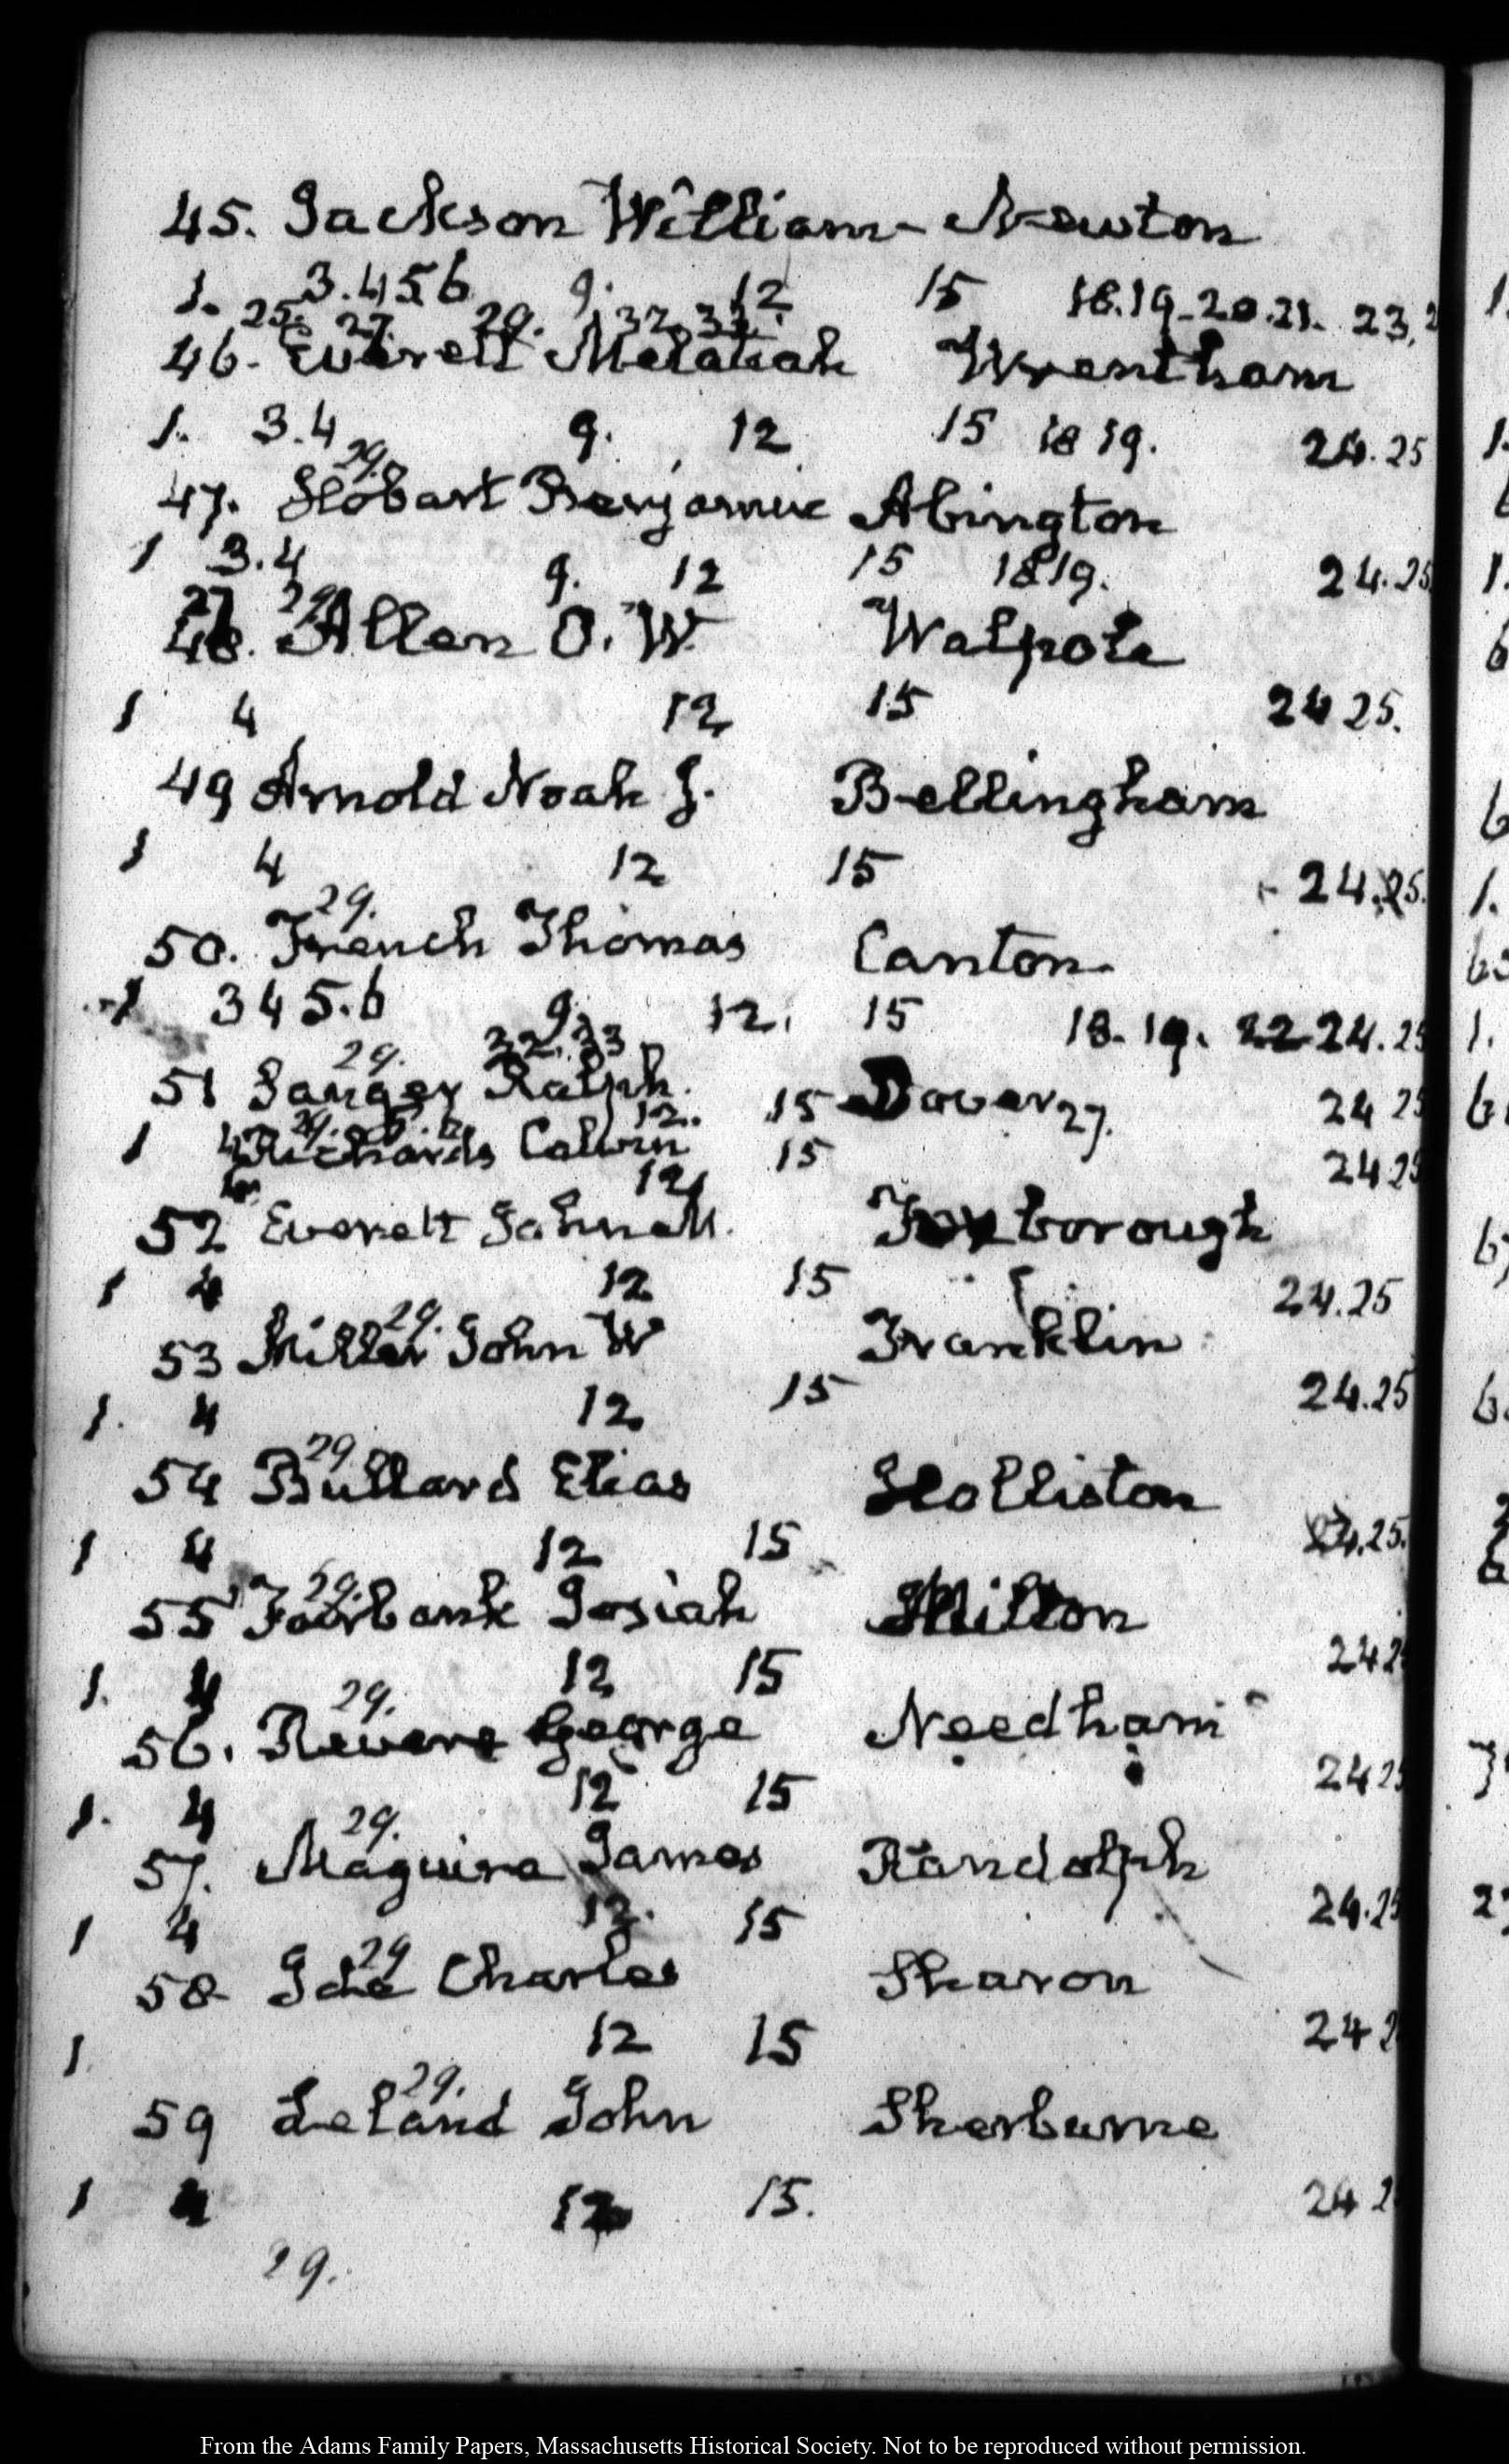 45. Jackson William - Newton
1. 3.4 5 6 9. 12 15 18.19-20.21. 23,
25. 27. 29. 32. 33.
46. Everett Metatiah Wrentham
1. 3.4 9. 12 15 18 19. 24.25
29.
47. Hobart Benjamin Abington
1 3.4 9. 12 15 18 19. 24.25
27 29
48. Allen O. W. Walpole
1 4 12 15 24 25.
49 Arnold Noah J. Bellingham
1 4 12 15 24.25.
29.
50. French Thomas Canton.
1 3 4 5.6 9. 12. 15 18. 19. 22 24. 25
29. 32. 33
51 Sanger Ralph. 15 Dover 27. 24 25
12.
1 4 Richards Calvin 15 24.25
12
52 Everett John M. Foxborough
1 4 12 15 24.25
29.
53 Miller John W Franklin
1. 4 12 15 24.25
29
54 Bullard Elias Holliston
1 4 12 15 24.25.
29.
55 Fairbank Josiah Milton
1. 4 12 15 24 2
29.
56. Revere George Needham
1. 4 12 15 24 25
29.
57. Maguire James Randolph
1 4 12. 15 24.25
29
58- Ide Charles Sharon
1. 12 15 24 2
29.
59 Leland John Sherburne
1 4 12 15. 24 2
29.
From the Adams Family Papers, Massachusetts Historical Society. Not to be reproduced without permission.